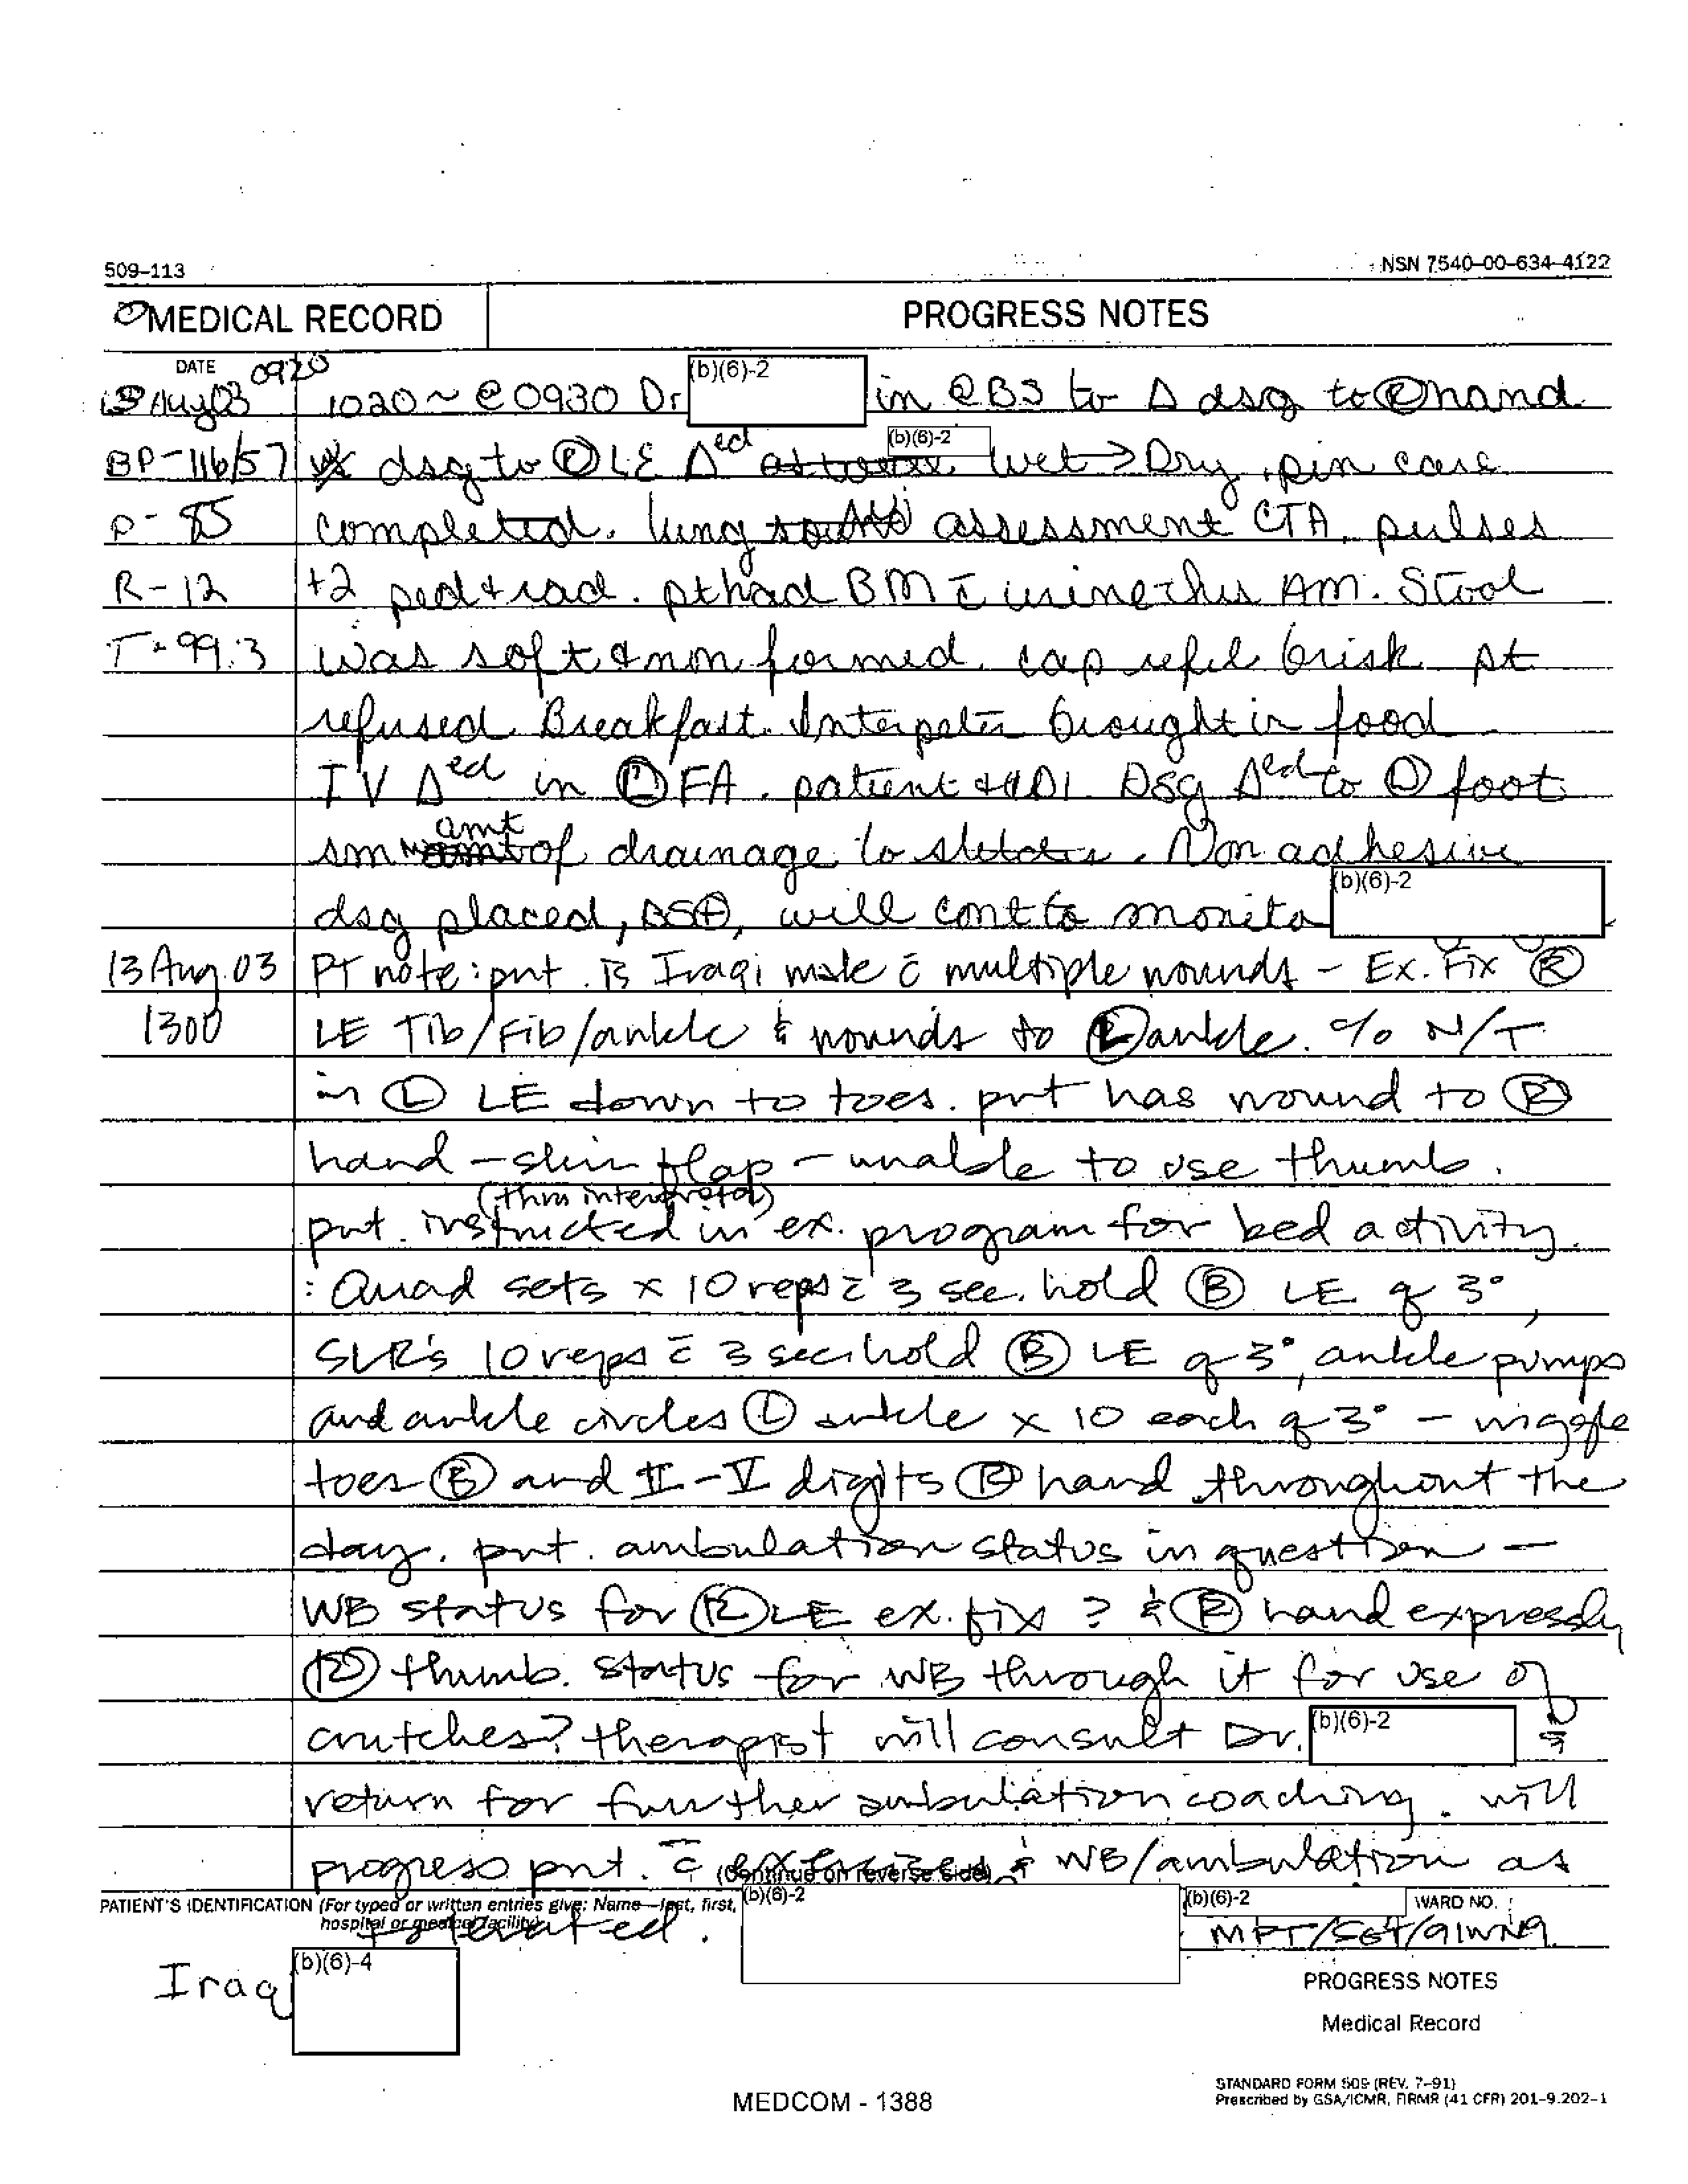 509-113
NSN 7540-00-634-4122
MEDICAL RECORD
PROGRESS NOTES
DATE 0920
13 Aug 03 1020 ~ @ 0930 Dr (b)(6)-2 in @ BS to Δ dsg to Ⓡ hand
BP-116/57 dsg to Ⓡ LE Δed (b)(6)-2 Wet > Dry, pin care
P- 85 completed. lung assessment CTA, pulses
R-12 +2 ped + rad. pt had BM c̄ urine this AM. Stool
T- 99.3 was soft & non formed. cap refil brisk pt
refused Breakfast. Interpeter brought in food
IV Δed in Ⓛ FA. patient + DI Dsg Δed to Ⓛ foot
sm amt of drainage to Non adhesive
dsg placed, BS⊕, will cont to monito (b)(6)-2
13 Aug 03 PT note: pnt. is Iraqi male c̄ multiple wounds - Ex. Fix Ⓡ
1300 LE Tib/Fib/ankle & wounds to Ⓛ ankle. c/o N/T
in Ⓛ LE down to toes. pnt has wound to Ⓡ
hand - skin flap - unable to use thumb.
(thru interpretor)
pnt. instructed in ex. program for bed activity.
: Quad sets x 10 reps c̄ 3 sec. hold Ⓑ LE q 3°,
SLR's 10 reps c̄ 3 sec. hold Ⓑ LE q 3°, ankle pumps
and ankle circles Ⓛ ankle x 10 each q 3° - wiggle
toes Ⓑ and II-V digits Ⓡ hand throughout the
day. pnt. ambulation status in question -
WB status for Ⓡ LE ex. fix ? & Ⓡ hand expressly
Ⓡ thumb. status for WB through it for use of
crutches? therapist will consult Dr. (b)(6)-2 &
return for further ambulation coaching. will
progress pnt. c̄ exercises & WB/ambulation as
(Continue on reverse side)
PATIENT'S IDENTIFICATION (For typed or written entries give: Name—last, first, (b)(6)-2 (b)(6)-2 WARD NO.
hospital or medical facility)
tolerated. MPT/SGT/91WN9
Iraq (b)(6)-4
PROGRESS NOTES
Medical Record
STANDARD FORM 509 (REV. 7-91)
Prescribed by GSA/ICMR, FIRMR (41 CFR) 201-9.202-1
MEDCOM - 1388